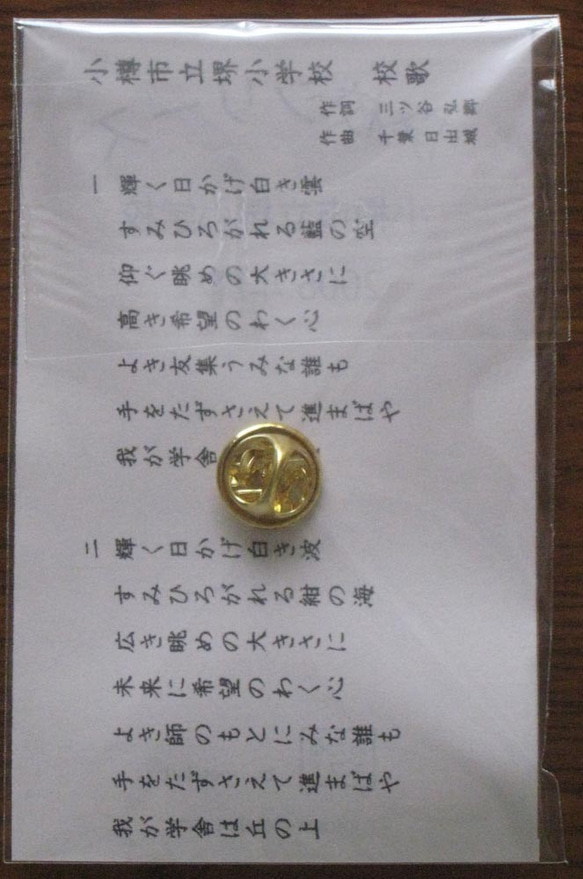 小樽市立堺小学校　校歌
作詞　三ツ谷 弘郷
作曲　千葉 日出城
一 輝く日かげ白き雲
すみひろがれる藍の空
仰ぐ眺めの大きさに
高き希望のわく心
よき友集うみな誰も
手をたずさえて進まばや
我が学舎
二 輝く日かげ白き波
すみひろがれる紺の海
広き眺めの大きさに
未来に希望のわく心
よき師のもとにみな誰も
手をたずさえて進まばや
我が学舎は丘の上